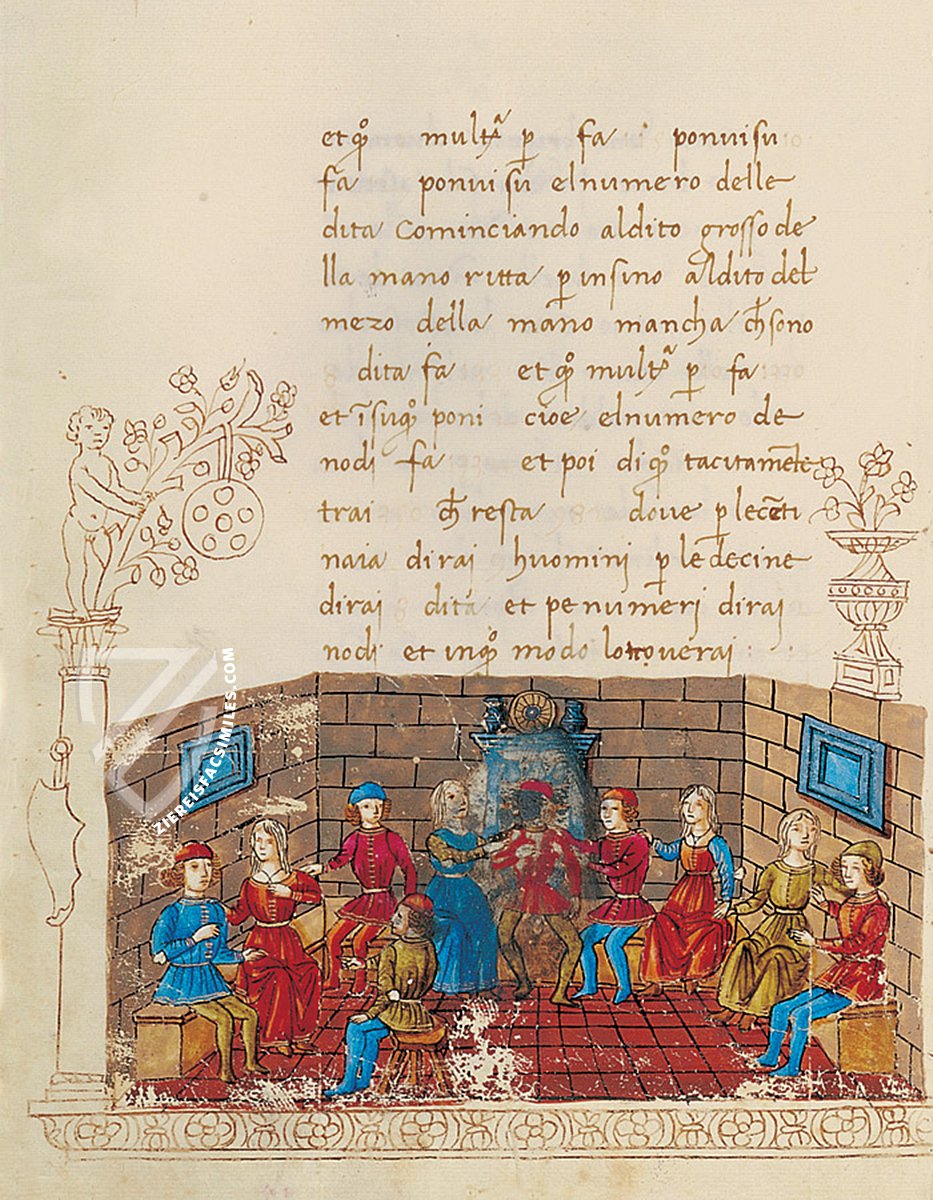 et qͦ multͣ p̱ fa ponvi su
fa ponvi su elnumero delle
dita Cominciando aldito grosso de
lla mano ritta p̱ insino aldito del
mezo della mano mancha ch̄ sono
dita fa et qͦ multͣ p̱ fa
et ī suqͦ poni cioe elnumero de
nodi fa et poi di qͦ tacitamēte
trai ch̄ resta dove p̱ le cēti
naia dirai huomini p̱ le decine
dirai dita et pe numeri dirai
nodi et inqͦ modo lo troverai :
ZIEREISFACSIMILES.COM